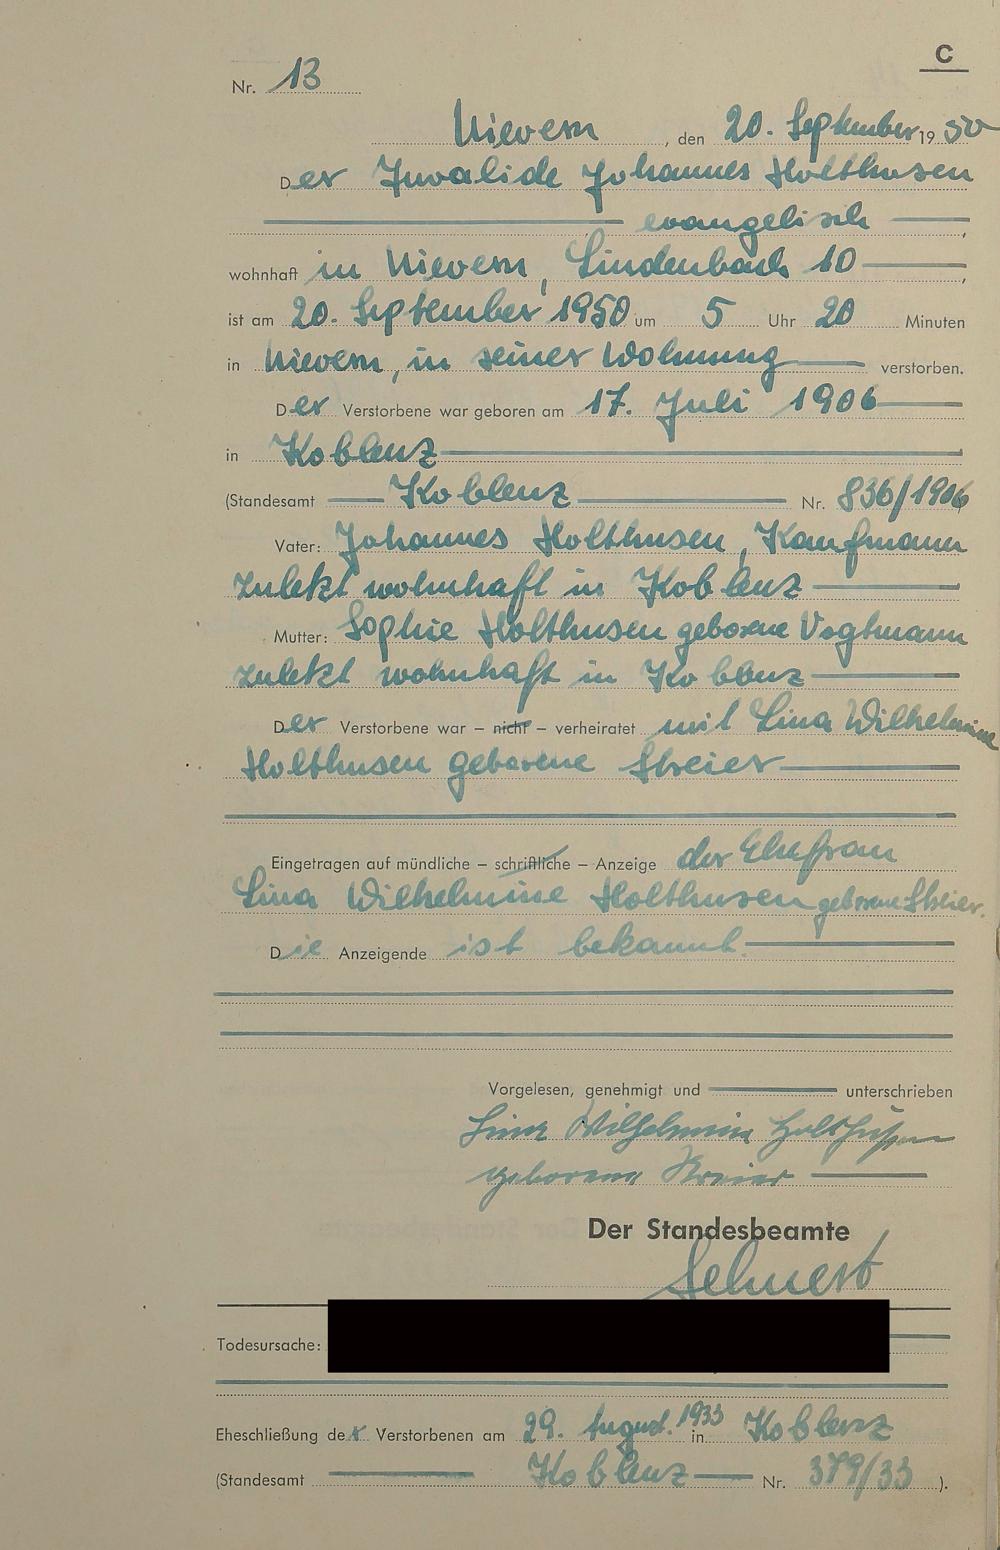 C
Nr. 13
Nievern, den 20. September 1950
Der Invalide Johannes Holthusen
evangelisch,
wohnhaft in Nievern, Lindenbach 10,
ist am 20. September 1950 um 5 Uhr 20 Minuten
in Nievern, in seiner Wohnung verstorben.
Der Verstorbene war geboren am 17. Juli 1906
in Koblenz
(Standesamt Koblenz Nr. 836/1906
Vater: Johannes Holthusen, Kaufmann
zuletzt wohnhaft in Koblenz
Mutter: Sophie Holthusen geborene Vogtmann
zuletzt wohnhaft in Koblenz
Der Verstorbene war – nicht – verheiratet mit Lina Wilhelmine
Holthusen geborene Streier
Eingetragen auf mündliche – schriftliche – Anzeige der Ehefrau
Lina Wilhelmine Holthusen geborene Streier.
Die Anzeigende ist bekannt.
Vorgelesen, genehmigt und unterschrieben
Lina Wilhelmine Holthusen
geborene
Der Standesbeamte
Todesursache:
Eheschließung des Verstorbenen am 29. August 1933 in Koblenz
(Standesamt Koblenz Nr. 379/33 ).